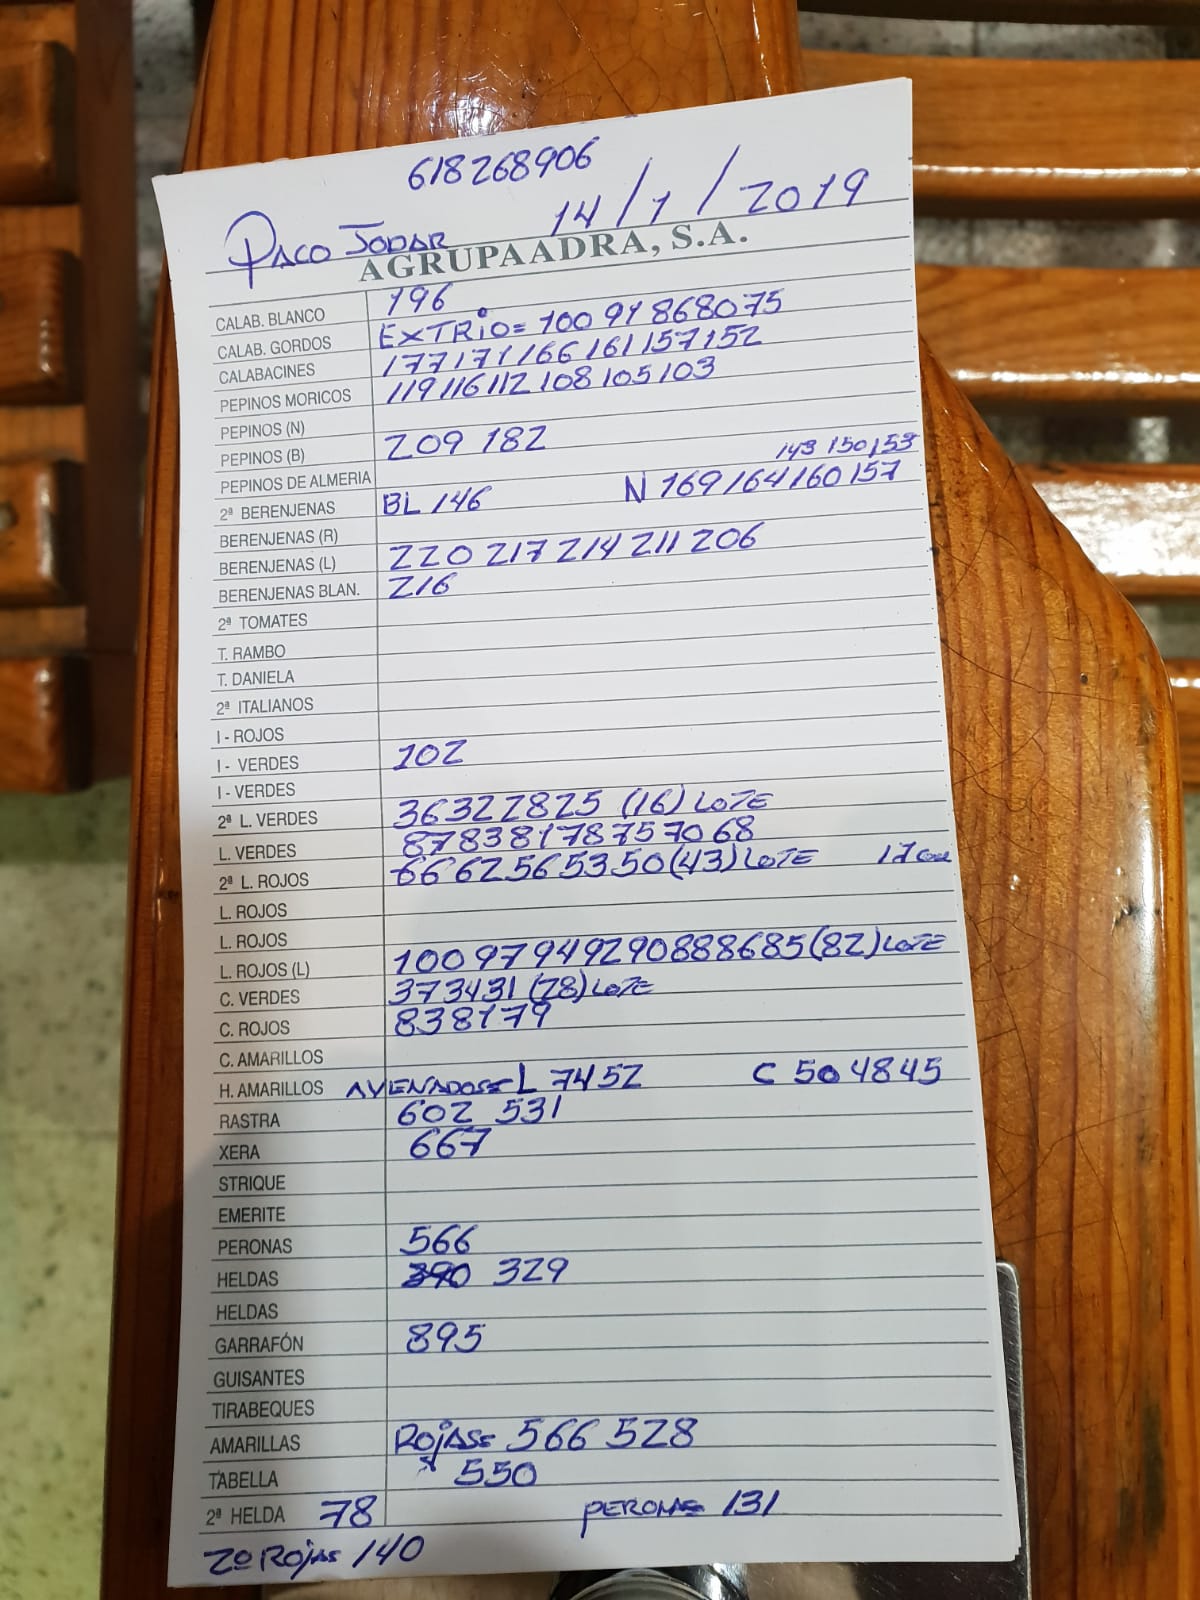 618268906
PACO JODAR 14/1/2019
AGRUPAADRA, S.A.
CALAB. BLANCO 196
CALAB. GORDOS EXTRIO= 100 91 86 80 75
CALABACINES 177 171 166 161 157 152
PEPINOS MORICOS 119 116 112 108 105 103
PEPINOS (N)
PEPINOS (B) 209 182
143 150 153
PEPINOS DE ALMERIA
2ª BERENJENAS BL 146 N 169 164 160 157
BERENJENAS (R)
BERENJENAS (L) 220 217 214 211 206
BERENJENAS BLAN. 216
2ª TOMATES
T. RAMBO
T. DANIELA
2ª ITALIANOS
I - ROJOS
I - VERDES 102
I - VERDES
2ª L. VERDES 36 32 28 25 (16) LOTE
L. VERDES 87 83 81 78 75 70 68
2ª L. ROJOS 66 62 56 53 50 (43) LOTE 17
L. ROJOS
L. ROJOS
L. ROJOS (L) 100 97 94 92 90 88 86 85 (82) LOTE
C. VERDES 37 34 31 (28) LOTE
C. ROJOS 83 81 79
C. AMARILLOS
H. AMARILLOS AVENADOS= L 74 52 C 50 48 45
RASTRA 602 531
XERA 667
STRIQUE
EMERITE
PERONAS 566
HELDAS 390 329
HELDAS
GARRAFÓN 895
GUISANTES
TIRABEQUES
AMARILLAS ROJAS= 566 528
TABELLA 550
2ª HELDA 78 PERONAS 131
2º ROJAS 140